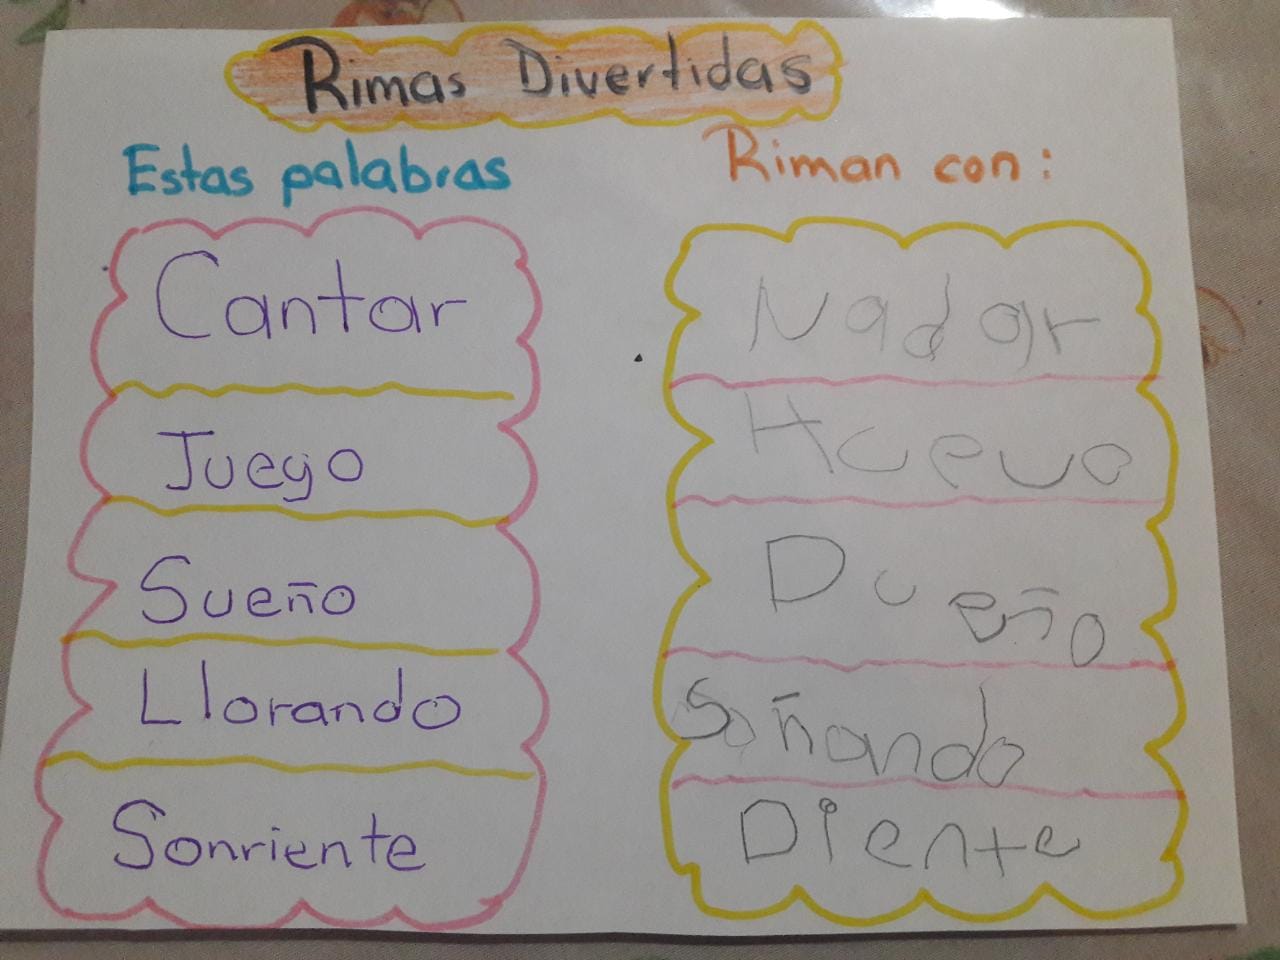 Rimas Divertidas
Estas palabras
Riman con:
Cantar
Nadar
Juego
Huevo
Sueño
Dueño
Llorando
Soñando
Sonriente
Diente